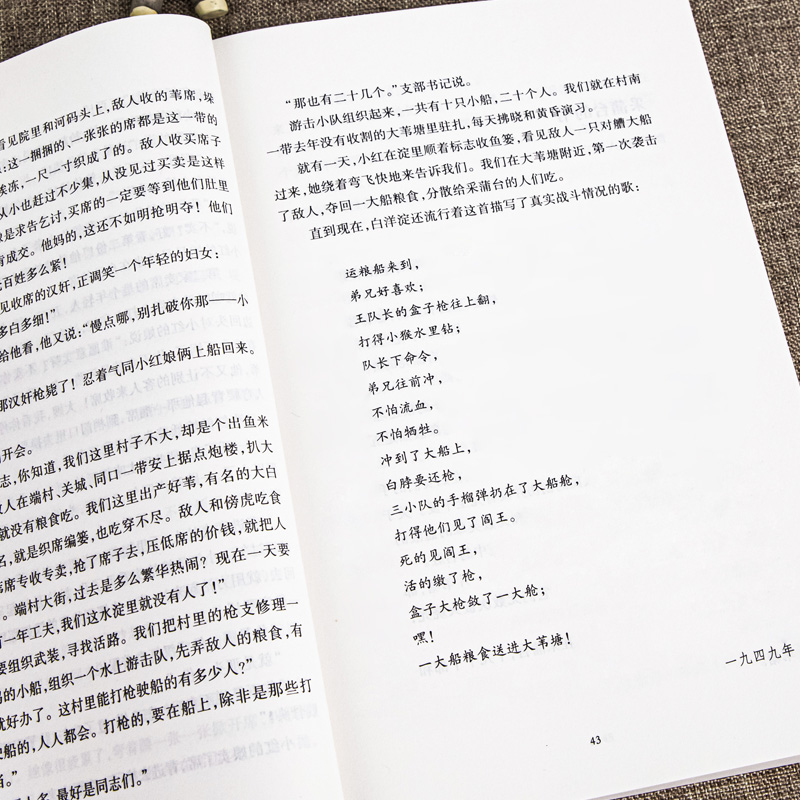 看见院里和河码头上，敌人收的苇席，垛
：这一捆捆的、一张张的席都是这一带的
挨冻，一尺一寸织成了的。敌人收买席子
从小也赶过不少集，从没见过买卖是这样
是求告乞讨，买席的一定要等到他们肚里
肯成交。他妈的，这还不如明抢明夺！他们
百姓多么紧！
见收席的汉奸，正调笑一个年轻的妇女：
多白多细！”
给他看，他又说：“慢点哪，别扎破你那——小
那汉奸枪毙了！忍着气同小红娘俩上船回来。
开会。
志，你知道，我们这里村子不大，却是个出鱼米
敌人在端村、关城、同口一带安上据点炮楼，扒大
就没有粮食吃。我们这里出产好苇，有名的大白
名，就是织席编篓，也吃穿不尽。敌人和傍虎吃食
席专收专卖，抢了席子去，压低席的价钱，就把人
。端村大街，过去是多么繁华热闹？现在一天要
有一年工夫，我们这水淀里就没有人了！”
要组织武装，寻找活路。我们把村里的枪支修理一
的小船，组织一个水上游击队，先弄敌人的粮食，有
就好办了。这村里能打枪驶船的有多少人？”
驶船的，人人都会。打枪的，要在船上，除非是那些打
当。”
名，最好是同志们。”
“那也有二十几个。”支部书记说。
游击小队组织起来，一共有十只小船，二十个人。我们就在村南
一带去年没有收割的大苇塘里驻扎，每天拂晓和黄昏演习。
就有一天，小红在淀里顺着标志收鱼篓，看见敌人一只对艚大船
过来，她绕着弯飞快地来告诉我们。我们在大苇塘附近，第一次袭击
了敌人，夺回一大船粮食，分散给采蒲台的人们吃。
直到现在，白洋淀还流行着这首描写了真实战斗情况的歌：
运粮船来到，
弟兄好喜欢；
王队长的盒子枪往上翻，
打得小猴水里钻；
队长下命令，
弟兄往前冲，
不怕流血，
不怕牺牲。
冲到了大船上，
白脖要还枪，
三小队的手榴弹扔在了大船舱，
打得他们见了阎王。
死的见阎王，
活的缴了枪，
盒子大枪敛了一大舱；
嘿！
一大船粮食送进大苇塘！
一九四九年
43